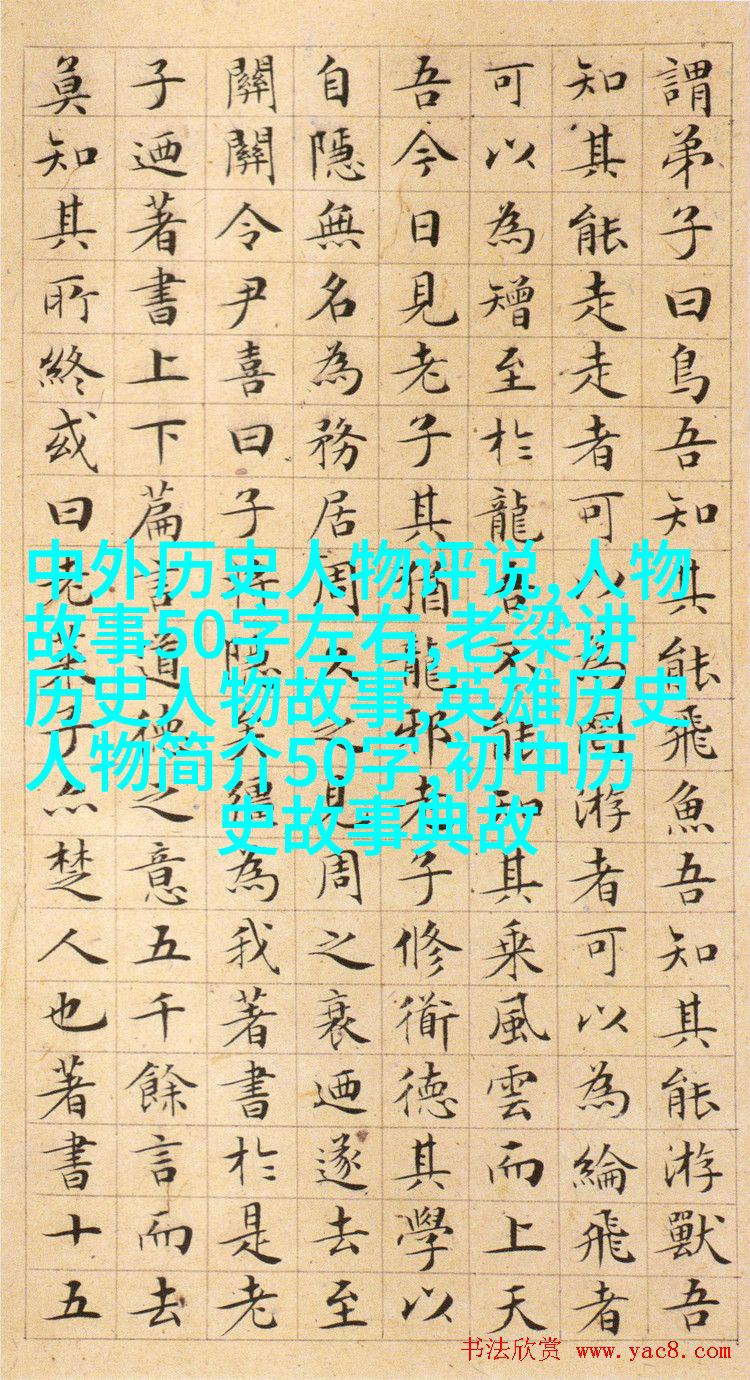 謂弟子曰鳥吾知其能飛魚吾知其能游獸吾
知其能走走者可以為罔游者可以為綸飛者
可以為矰至於龍吾不能知其乘風雲而上天
吾今日見老子其猶龍邪老子修衜德其學以
自隱無名為務居周久之見周之衰迺遂去至
關關令尹喜曰子將隱矣彊為我著書於是老
子迺著書上下篇言道德之意五千餘言而去
莫知其所終或曰老萊子亦楚人也著書十五
中外历史人物评说,人物
故事50字左右,老梁讲
历史人物故事,英雄历史
人物简介50字,初中历
史故事典故
书法欣赏 www.yac8.com